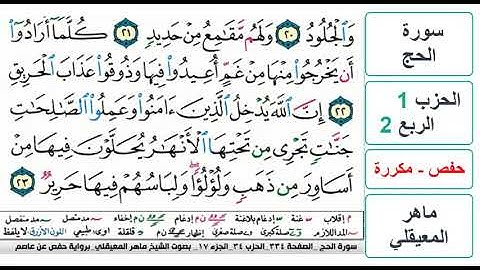 وَٱلْجُلُودُ ٢٠ وَلَهُم مَّقَٰمِعُ مِنْ حَدِيدٍ ٢١ كُلَّمَآ أَرَادُوٓا۟
أَن يَخْرُجُوا۟ مِنْهَا مِنْ غَمٍّ أُعِيدُوا۟ فِيهَا وَذُوقُوا۟ عَذَابَ ٱلْحَرِيقِ
٢٢ إِنَّ ٱللَّهَ يُدْخِلُ ٱلَّذِينَ ءَامَنُوا۟ وَعَمِلُوا۟ ٱلصَّٰلِحَٰتِ
جَنَّٰتٍ تَجْرِى مِن تَحْتِهَا ٱلْأَنْهَٰرُ يُحَلَّوْنَ فِيهَا مِنْ
أَسَاوِرَ مِن ذَهَبٍ وَلُؤْلُؤًا ۖ وَلِبَاسُهُمْ فِيهَا حَرِيرٌ ٢٣
سورة
الحج
الحزب 1
الربع 2
حفص - مكررة
ماهر
المعيقلي
م إقلاب غنة إدغام بلاغنة إدغام إخفاء مد متصل مد منفصل
المد اللازم صلة كبرى صلة صغرى طبيعي اللون الأزرق لا يلفظ
سورة الحج _ الصفحة ٣٣٤ الحزب ٣٤ _ الجزء ١٧ _ بصوت الشيخ ماهر المعيقلي _ برواية حفص عن عاصم